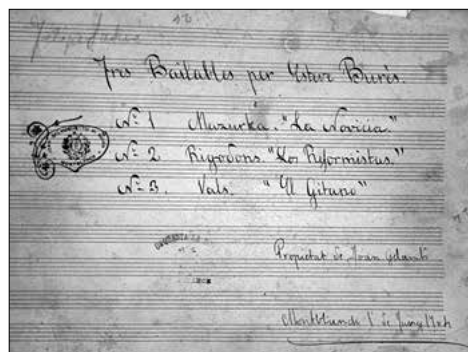 Tres Bailables per Esteve Burés.
Nº 1 Mazurka. "La Novicia."
Nº 2 Rigodons. "Los Reformistas."
Nº 3. Vals. "El Gitano"
Propietat de Joan
Montblanch 1 de Juny